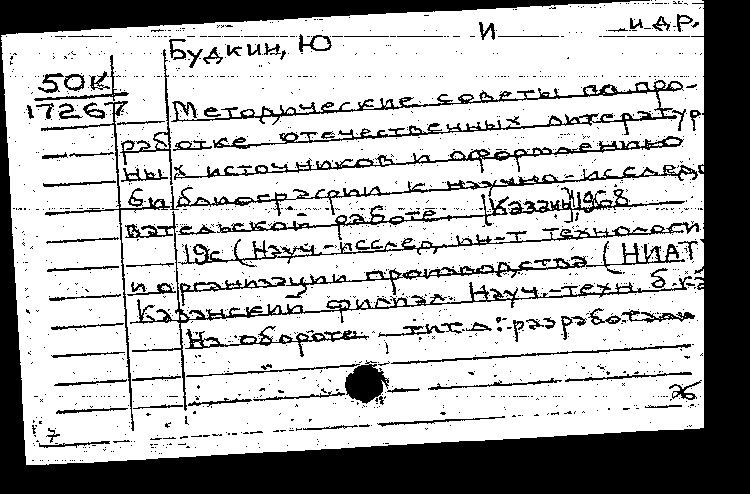 Будкин, Ю И и др.
50К
17267
Методические советы по про-
работке отечественных литератур-
ных источников и оформлению
библиографии к научно-исследо
вательской работе. [Казань], 1968
19с (Науч.-исслед. ин-т технологии
и организации производства (НИАТ)
Казанский филиал. Науч.-техн. б-ка
На обороте тит. л: разработали
7